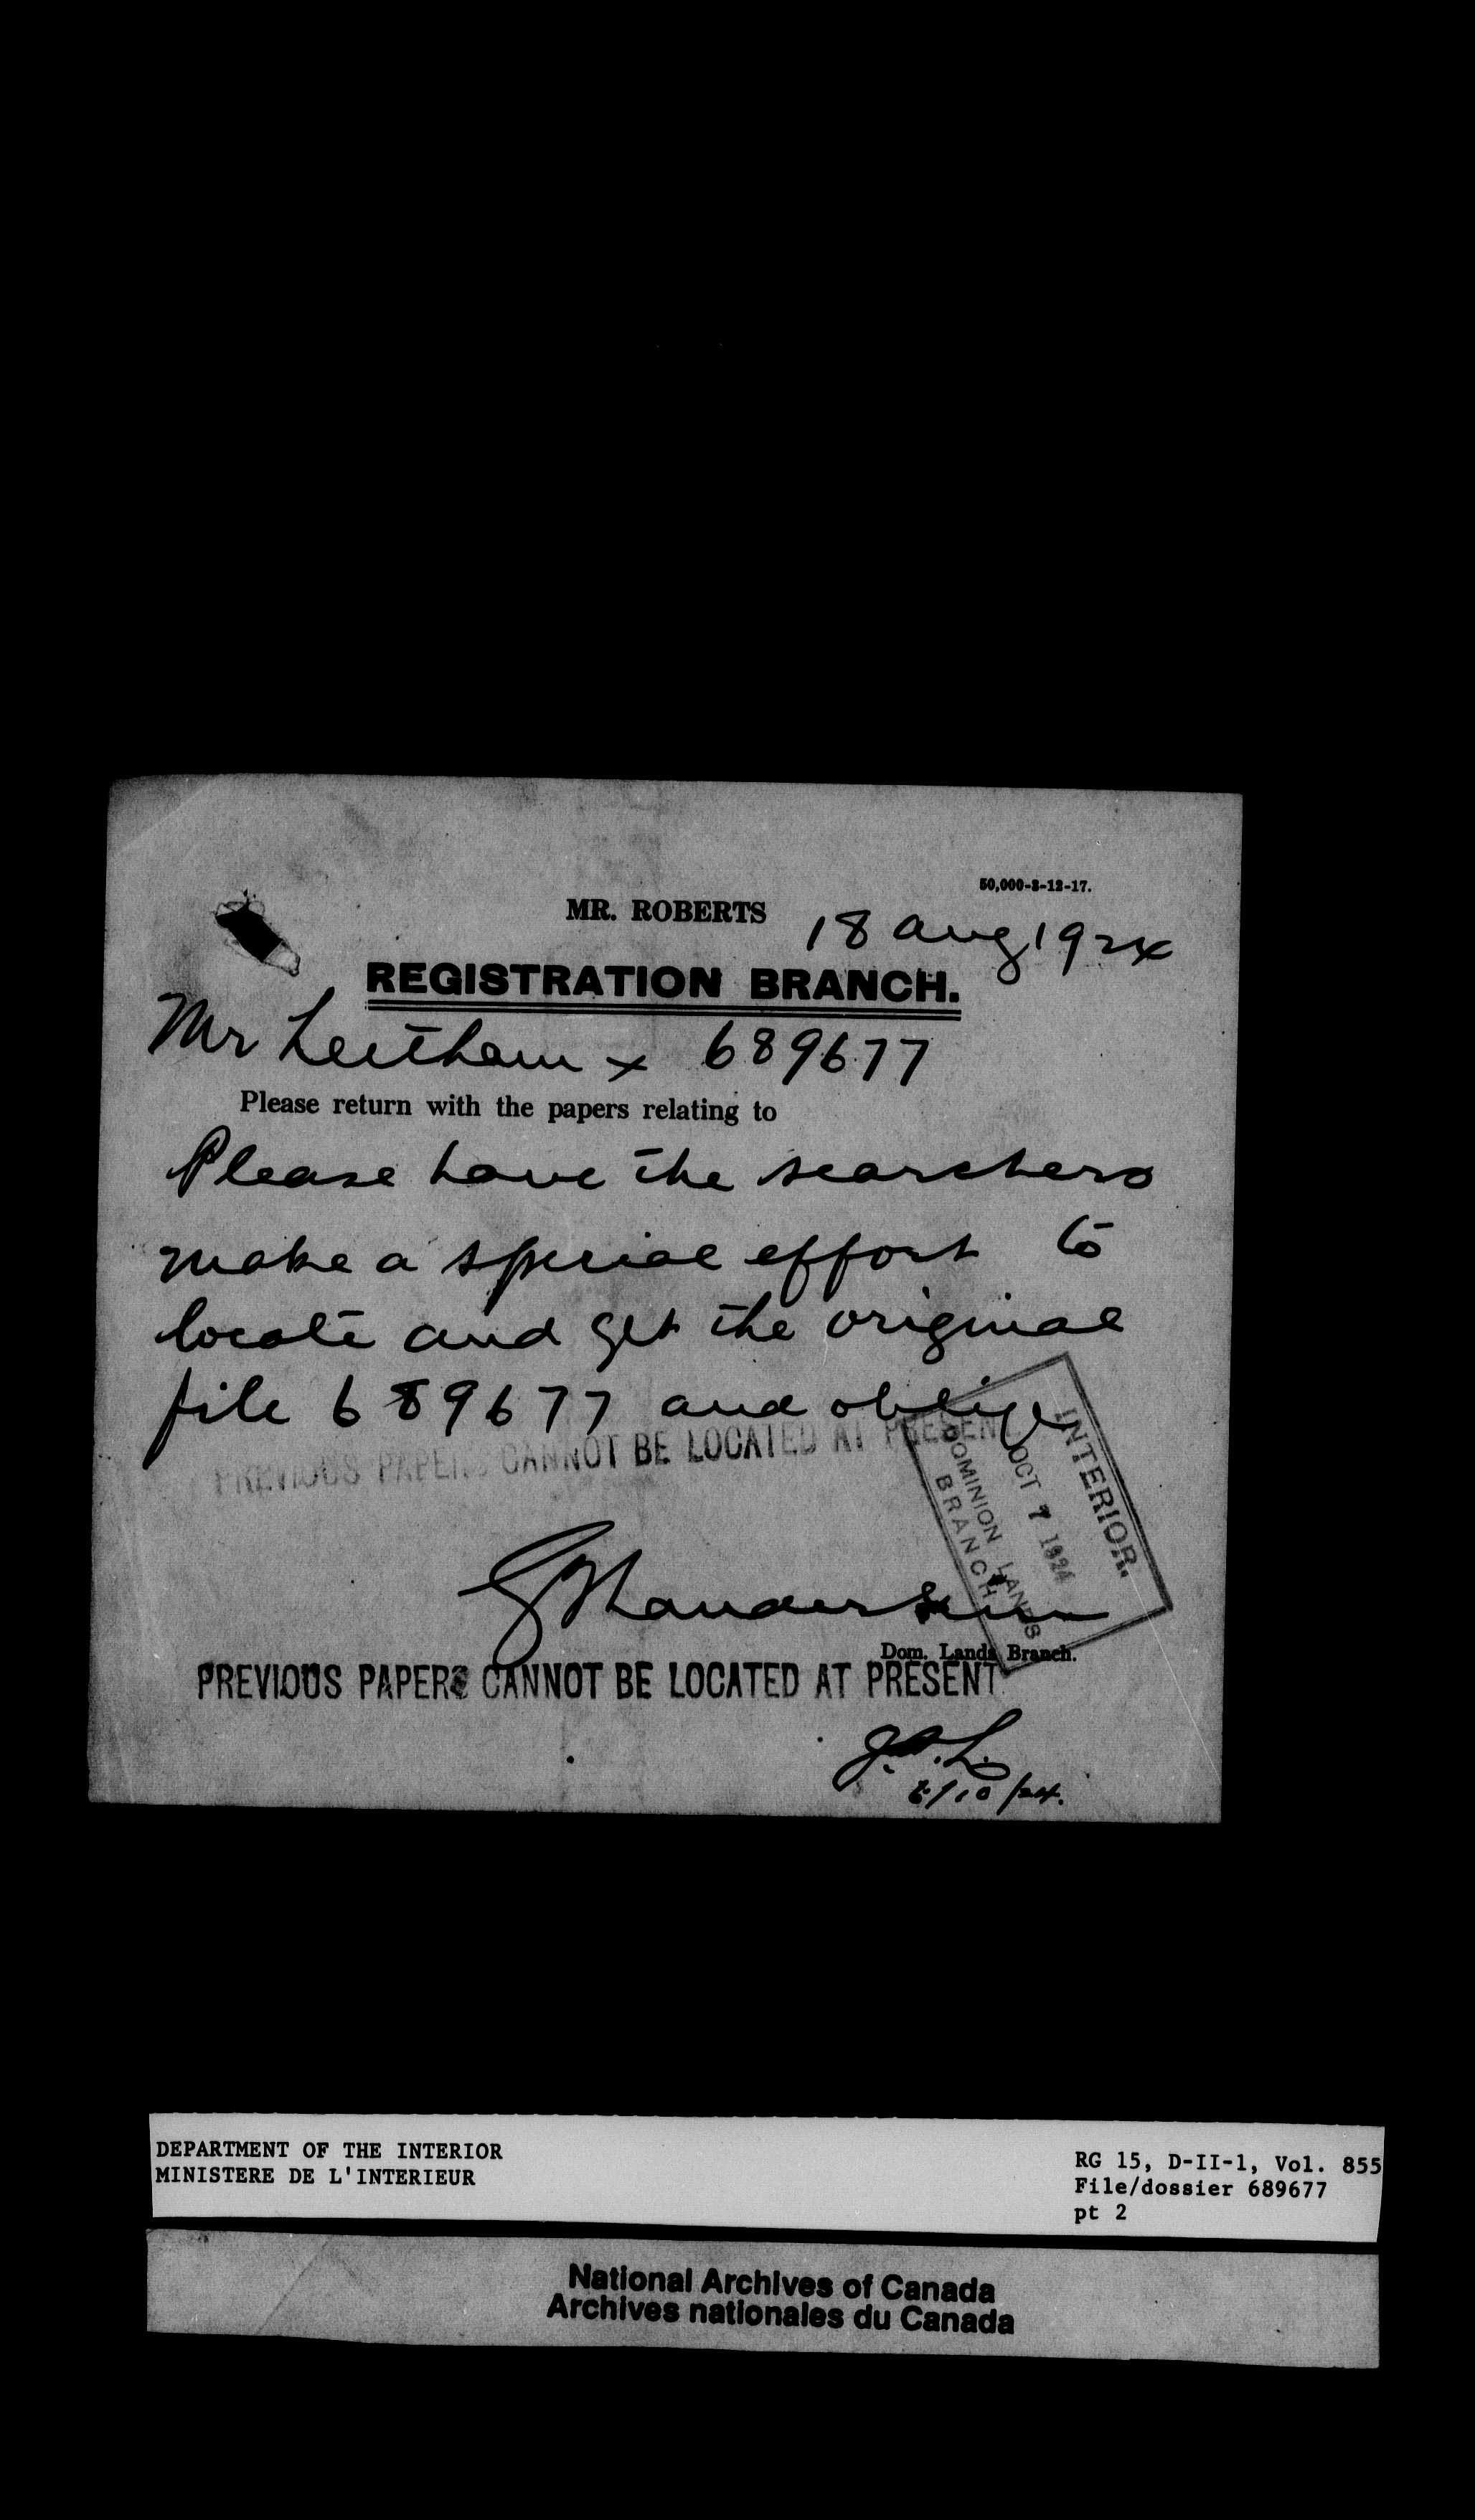 50,000-3-12-17.
MR. ROBERTS
18 Aug 1924
REGISTRATION BRANCH.
Mr Leitham x 689677
Please return with the papers relating to
Please have the searchers
make a special effort to
locate and get the original
file 689677 and oblige
PREVIOUS PAPERS CANNOT BE LOCATED AT PRESENT
INTERIOR.
OCT 7 1924
DOMINION LANDS
BRANCH
Dom. Lands Branch.
PREVIOUS PAPERS CANNOT BE LOCATED AT PRESENT
6/10/24.
DEPARTMENT OF THE INTERIOR
MINISTERE DE L'INTERIEUR
RG 15, D-II-1, Vol. 855
File/dossier 689677
pt 2
National Archives of Canada
Archives nationales du Canada